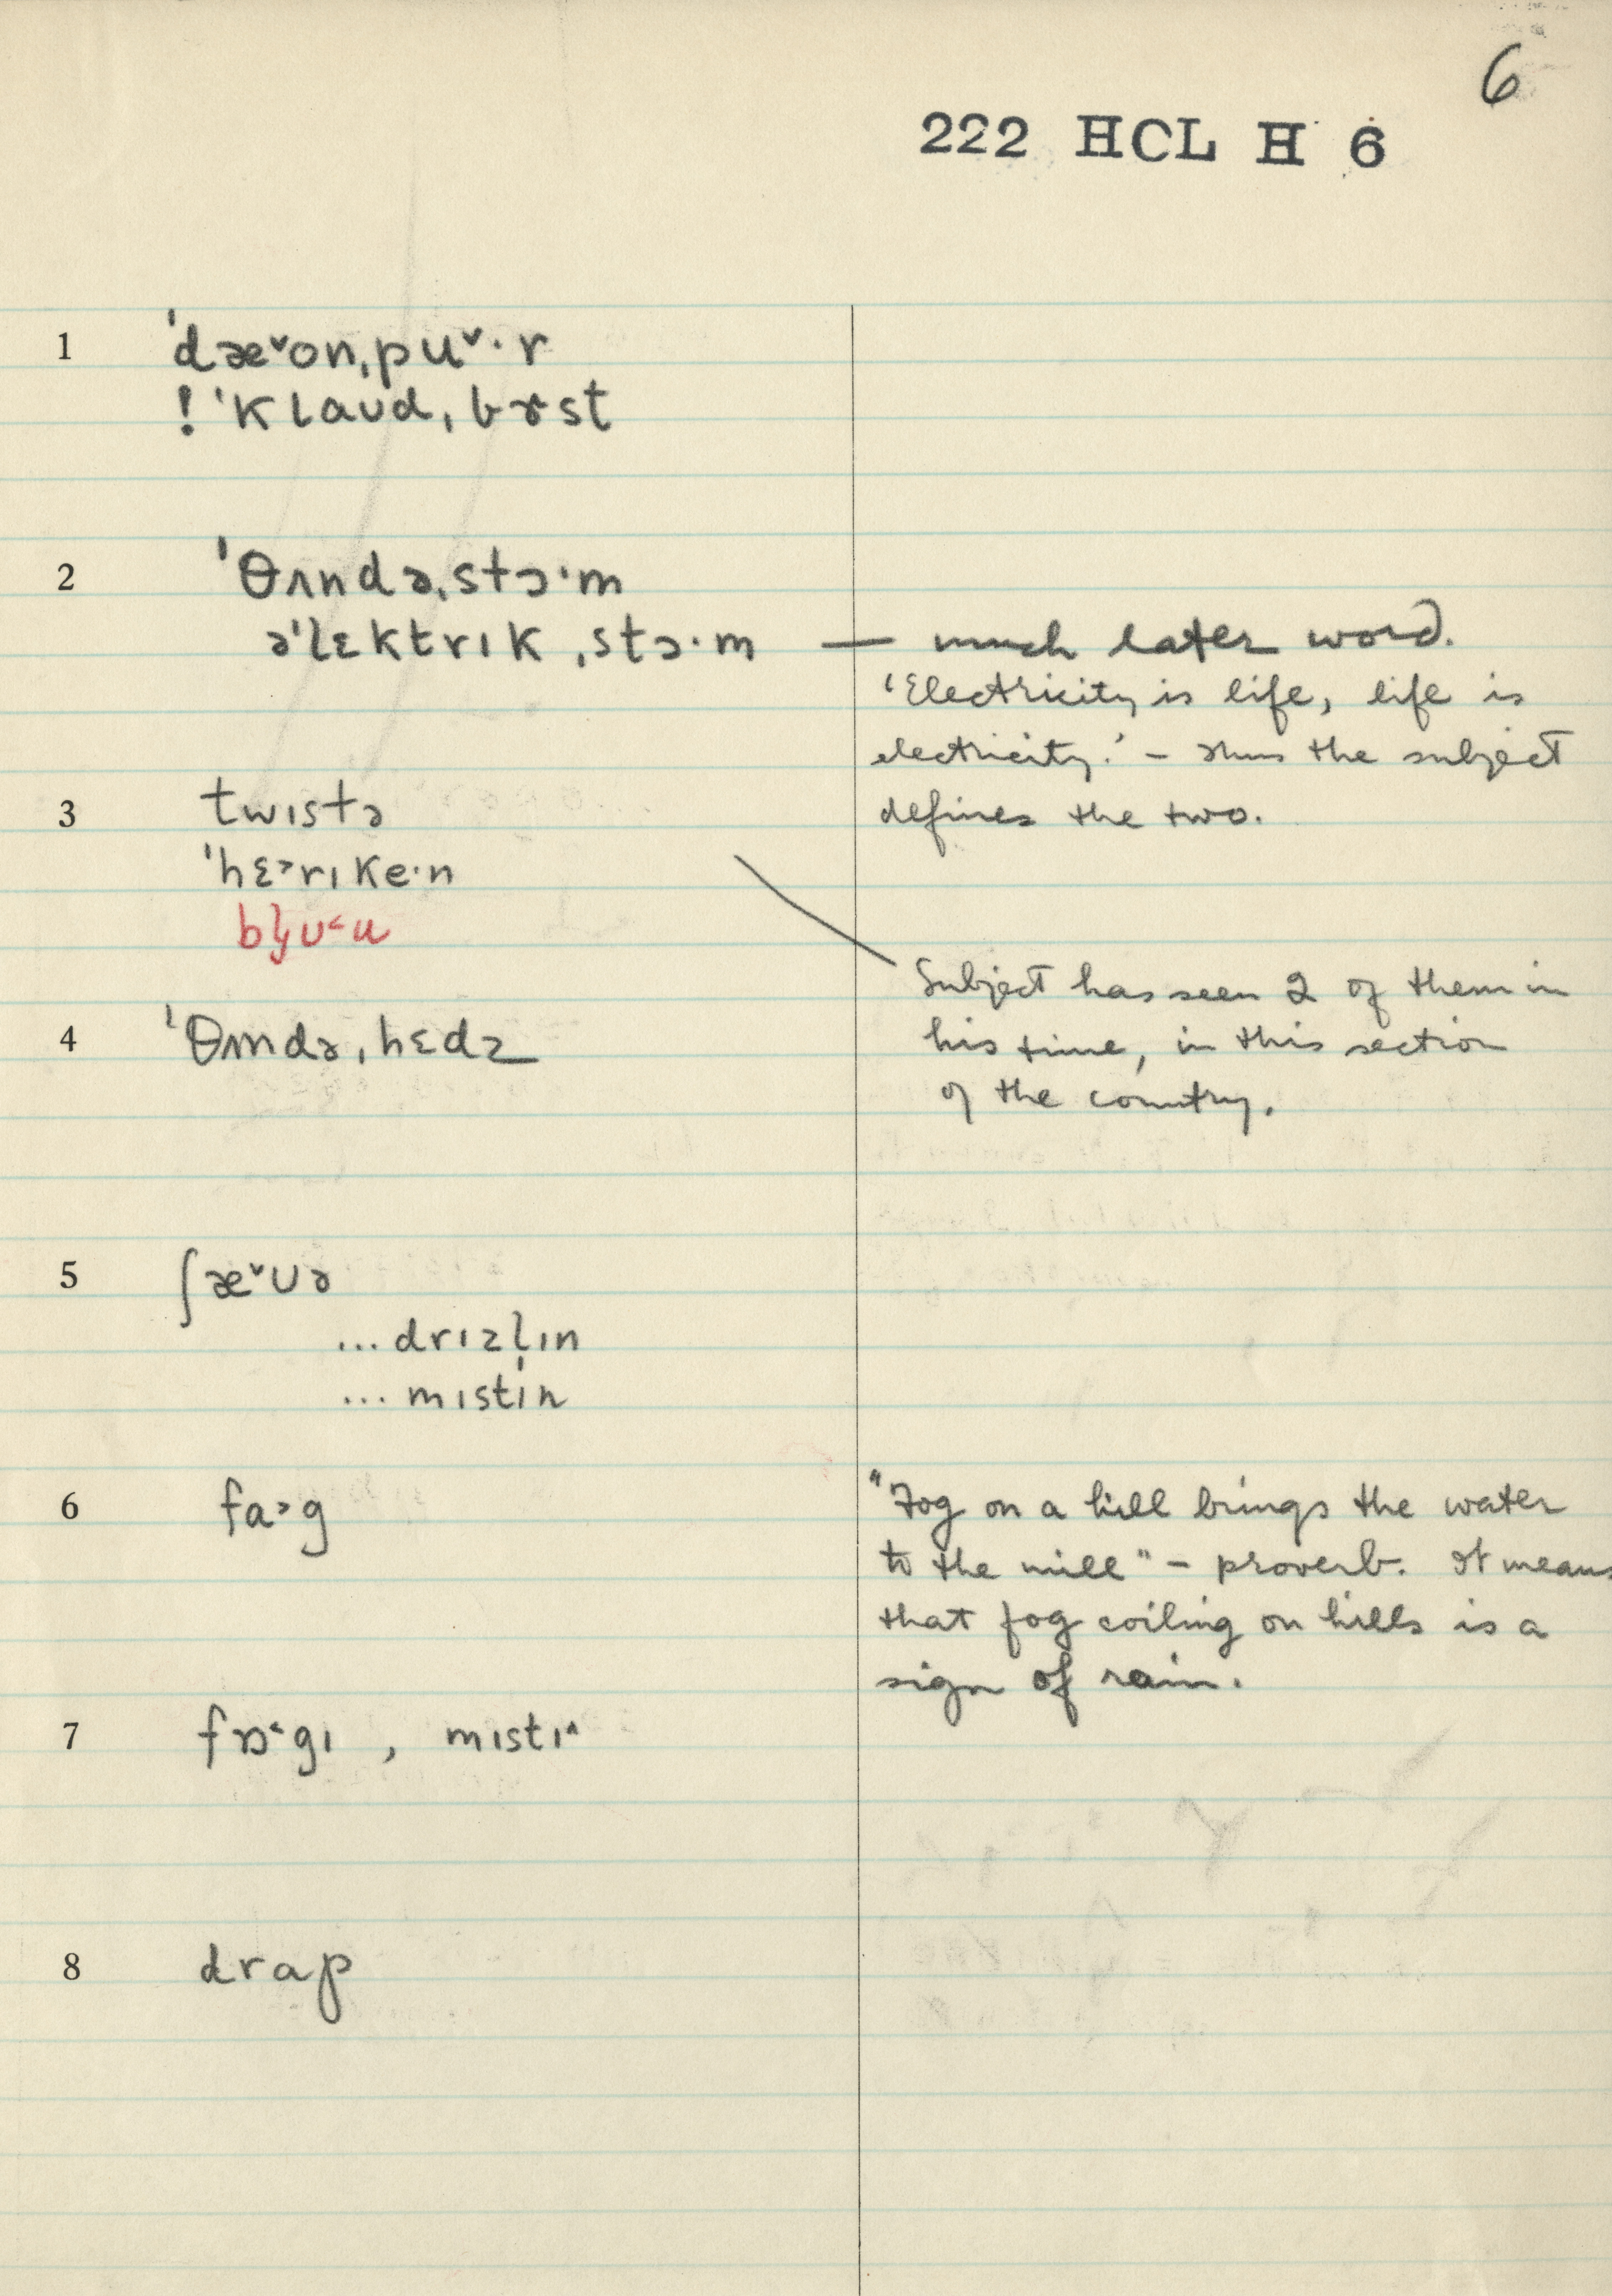 6
222 HCL H 6
1 ˈdæ˅on,pu˅·r
! ˈklaʊd,bɝst
2 ˈθʌndə,stɔ·m
əˈlɛktrɪk ,stɔ·m — much later word.
'Electricity is life, life is
electricity.' – thus the subject
defines the two.
3 twɪstə
ˈhɛ˃rɪke·n
Subject has seen 2 of them in
his time, in this section
of the country.
4 ˈθʌndə,hɛdz
5 ʃæ˅ʊə
... drɪzl̩ɪn
... mɪstɪn
6 fa˃g
"Fog on a hill brings the water
to the mill" – proverb. It means
that fog coiling on hills is a
sign of rain.
7 fɒ˂gɪ , mɪstɪ˄
8 drap